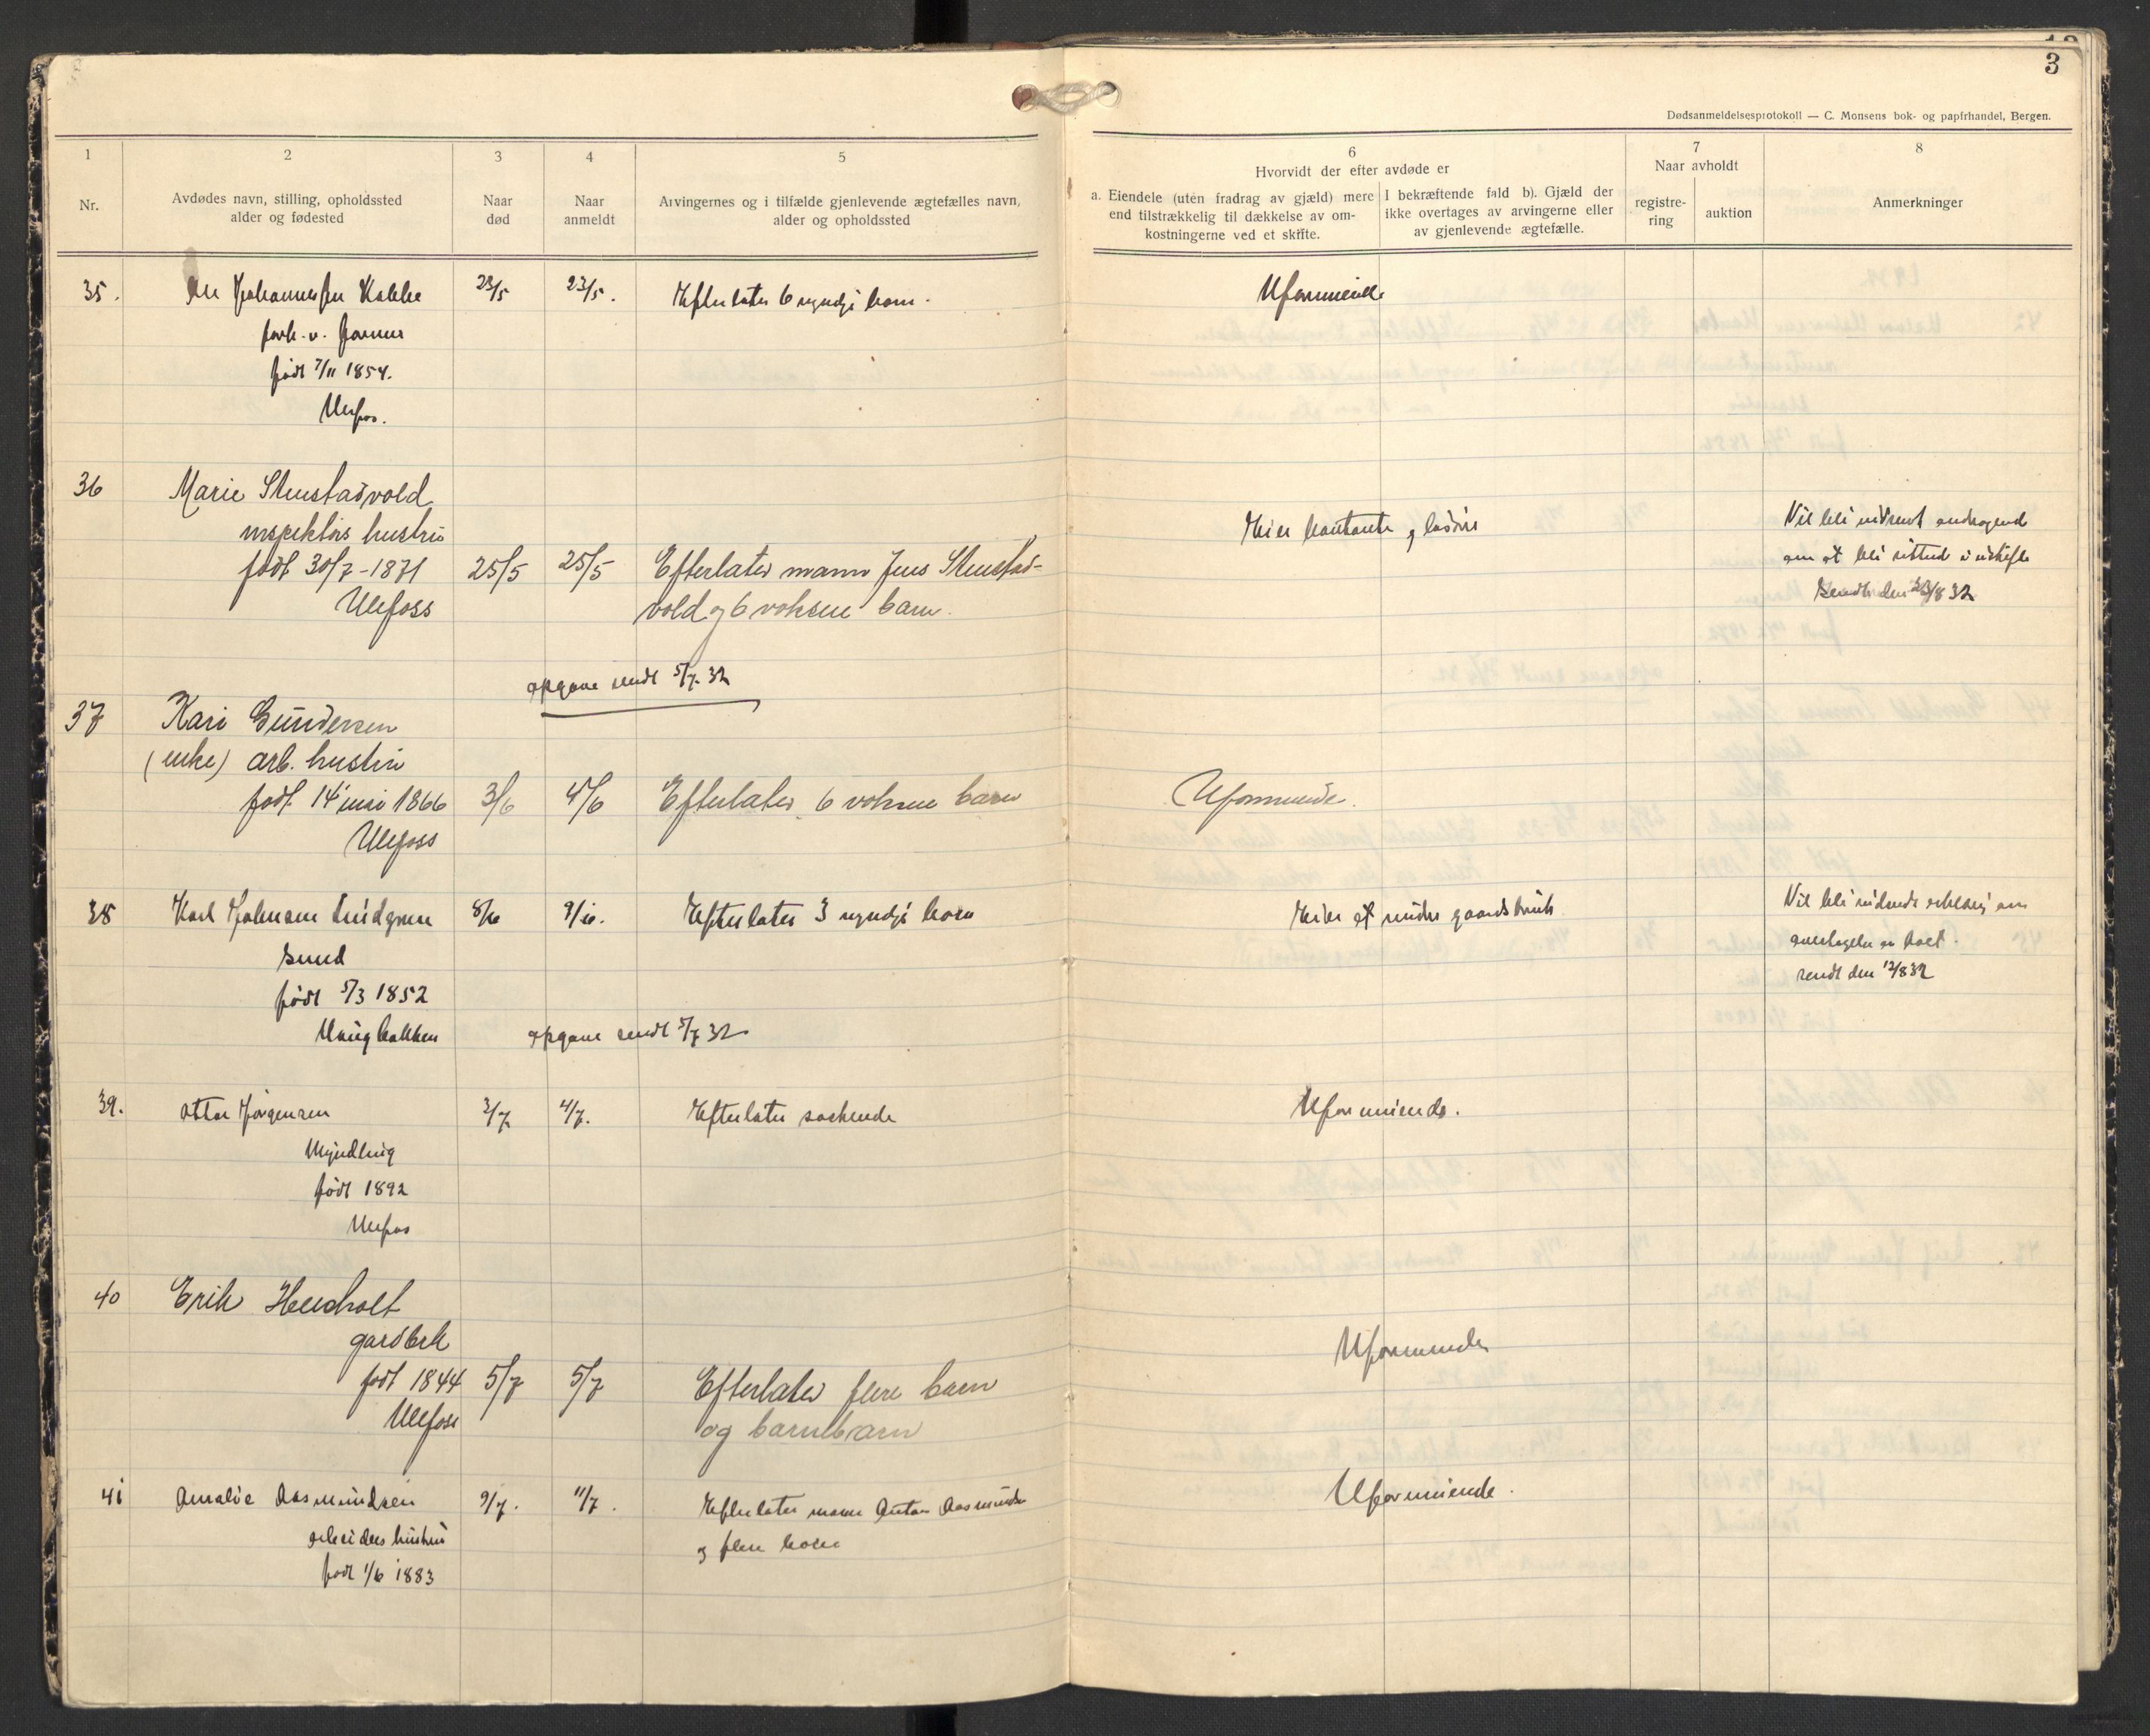 3
Dødsanmeldelsesprotokoll — C. Monsens bok- og papfrhandel, Bergen.
1
2
3
4
5
6
7
8
Nr.
Avdødes navn, stilling, opholdssted
alder og fødested
Naar
død
Naar
anmeldt
Arvingernes og i tilfælde gjenlevende ægtefælles navn,
alder og opholdssted
Hvorvidt der efter avdøde er
a. Eiendele (uten fradrag av gjæld) mere
end tilstrækkelig til dækkelse av om-
kostningerne ved et skifte.
I bekræftende fald b). Gjæld der
ikke overtages av arvingerne eller
av gjenlevende ægtefælle.
Naar avholdt
registre-
ring
auktion
Anmerkninger
35. Johannessen 23/5 23/5. Efterlater 6 myndji barn. Uformuende
forh. v.
født 7/11 1854.
Ulefos.
36 Marie Stenstadvold
inspektörs hustru
født 30/7-1871 25/5 25/5 Efterlater mann Jens Stenstad-
Ulefoss vold og 6 voksne barn.
Eier kontante og løsöre
Vil bli indsent andragende
om at bli sittende i uskifte
Sendt den 23/8 32
opgave sendt 5/7-32
37 Kari Gundersen
(enke) arb. hustru
født 14 mai 1866 3/6 4/6 Efterlater 6 voksne barn Uformuende.
Ulefoss
38 Karl Johnsen Lindgren 8/6 9/6. Efterlater 3 myndji barn Eier et mindre gaardsbruk
Smed
født 5/3 1852
Vil bli indsendt erklæring om
overtagelse av boet.
sendt den 12/8 32
opgave sendt 5/7 32
39. Otto Jörgensen 3/7 4/7. Efterlater søskende Uformuende.
Myndling
født 1892
Ulefos
40 Erik Heisholt
gardbrk
født 1844 5/7 5/7 Efterlater flere barn
Ulefoss og barnebarn
Uformuende
41 Amalie Aasmundsen 9/7. 11/7. Efterlater mann Anton Aasmundsen
arbeiders hustru og flere barn
født 1/6 1883
Uformuende.